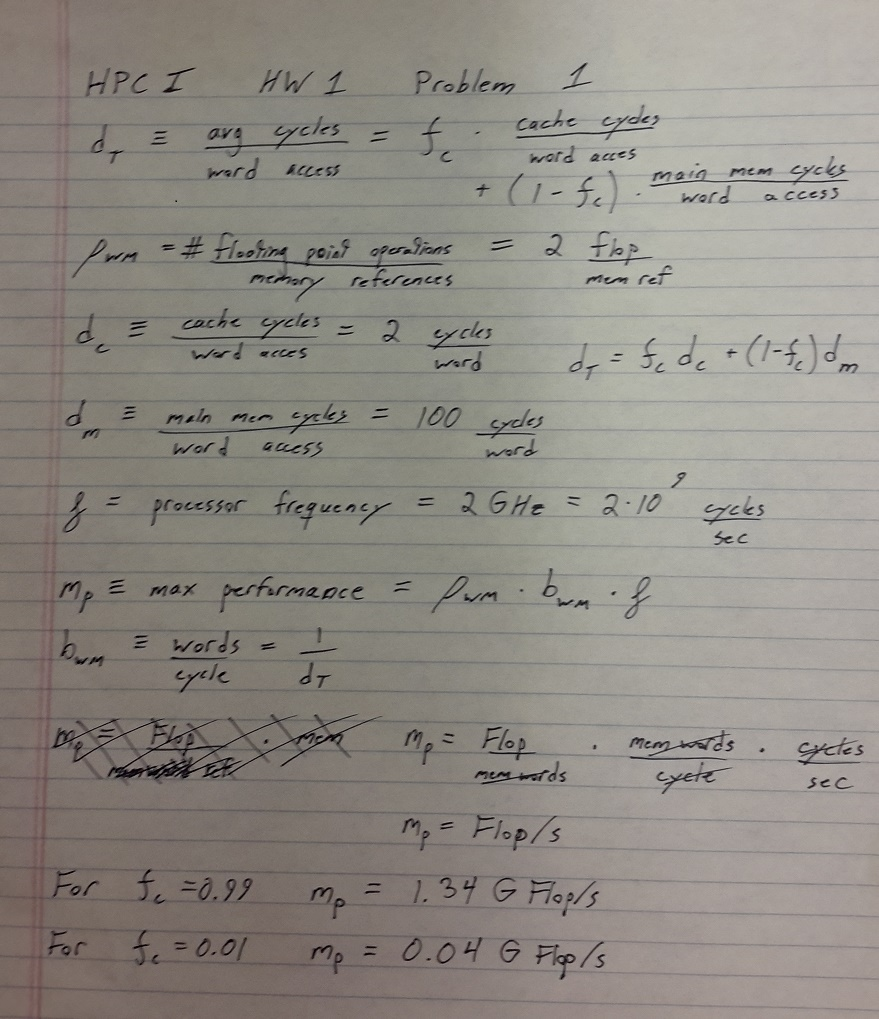 HPC I HW 1 Problem 1
d_T ≡ avg cycles / word access = f_c · cache cycles / word acces
+ (1 - f_c) · main mem cycles / word access
ρ_wm = # floating point operations / memory references = 2 flop / mem ref
d_c ≡ cache cycles / word acces = 2 cycles / word d_T = f_c d_c + (1-f_c) d_m
d_m ≡ main mem cycles / word access = 100 cycles / word
f = processor frequency = 2 GHz = 2·10^9 cycles / sec
m_p ≡ max performance = ρ_wm · b_wm · f
b_wm ≡ words / cycle = 1 / d_T
m_p = Flop / · mem m_p = Flop / mem words · mem words / cycle · cycles / sec
m_p = Flop/s
For f_c = 0.99 m_p = 1.34 G Flop/s
For f_c = 0.01 m_p = 0.04 G Flop/s